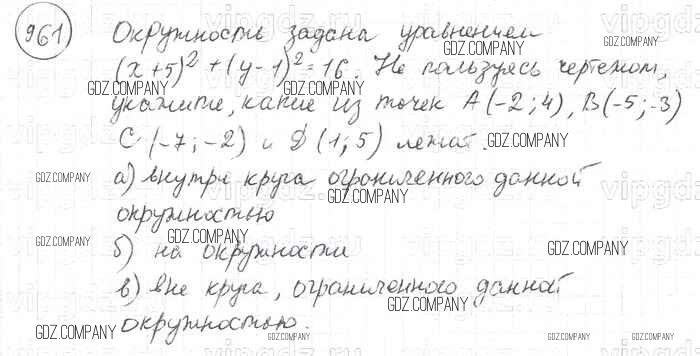 961 Окружность задана уравнением
(x+5)² + (y-1)² = 16. Не пользуясь чертежом,
укажите, какие из точек A (-2; 4), B (-5; -3)
C (-7; -2) и D (1; 5) лежат.
а) внутри круга ограниченного данной
окружностью
б) на окружности
в) вне круга, ограниченного данной
окружностью.
GDZ.COMPANY
GDZ.COMPANY
GDZ.COMPANY
GDZ.COMPANY
GDZ.COMPANY
GDZ.COMPANY
GDZ.COMPANY
GDZ.COMPANY
GDZ.COMPANY
GDZ.COMPANY
GDZ.COMPANY
GDZ.COMPANY
GDZ.COMPANY
GDZ.COMPANY